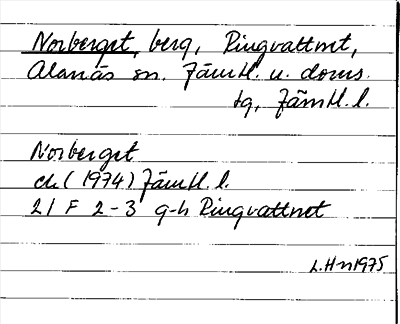 Norberget, berg, Ringvattnet,
Alanäs sn. Jämtl. n. doms.
tg, Jämtl. l.
Norberget
ek (1974) Jämtl. l.
21 F 2-3 g-h Ringvattnet
L.H-n 1975